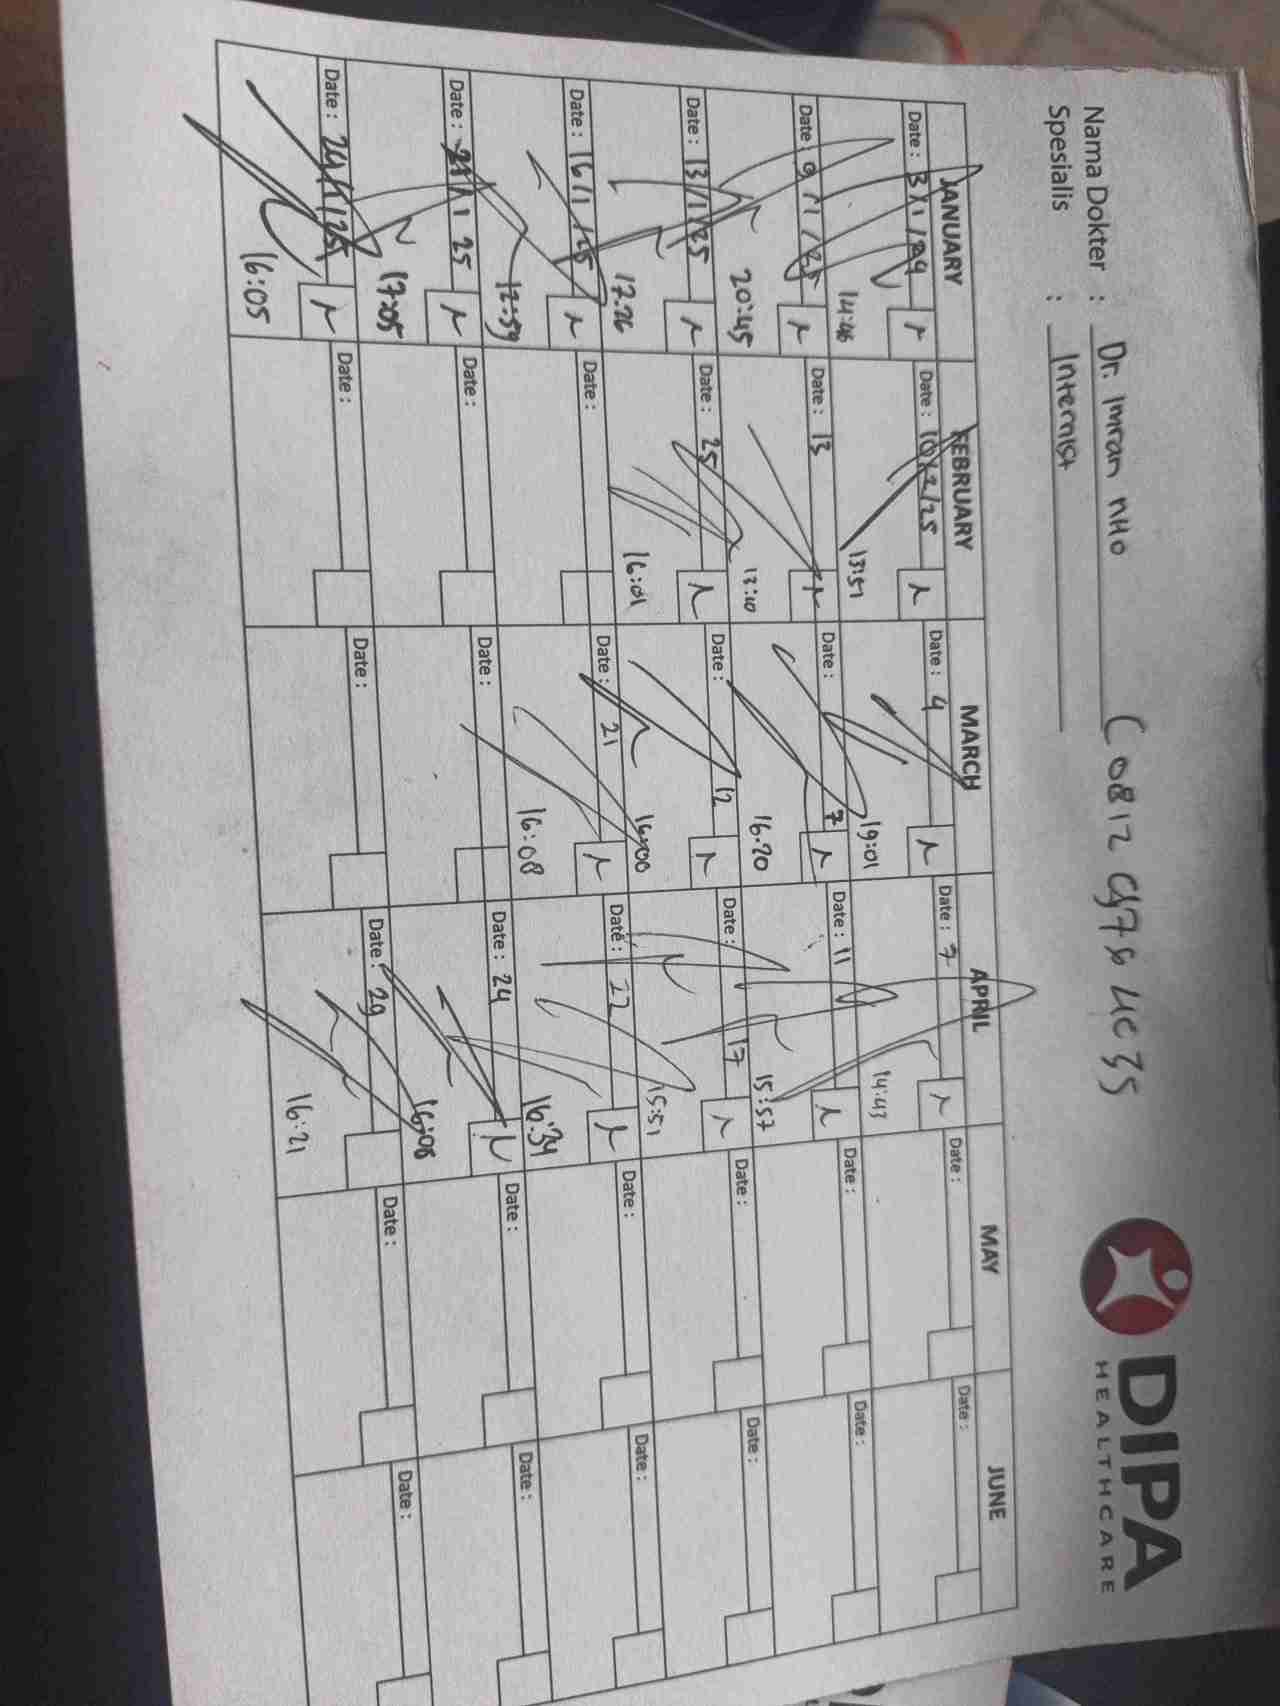 DIPA
HEALTHCARE
Nama Dokter : Dr. Imran nHo
Spesialis : Internist
JANUARY FEBRUARY MARCH APRIL MAY JUNE
Date : 3/1/24 Date : 10/2/25 Date : 4 Date : 7 Date : Date :
14:46 13:51 19:01 14:43
Date : 9/1/25 Date : 13 Date : 7 Date : 11 Date : Date :
20:45 13:10 16.20 15:57
Date : 13/1/25 Date : 25 Date : 12 Date : 17 Date : Date :
17.26 16:01 16:00 15:51
Date : 16/1/25 Date : Date : 21 Date : 22 Date : Date :
12:59 16:08 16:34
Date : 21/1 25 Date : Date : Date : 24 Date : Date :
17:05 16:08
Date : 24/1/25 Date : Date : Date : 29 Date : Date :
16:05 16:21